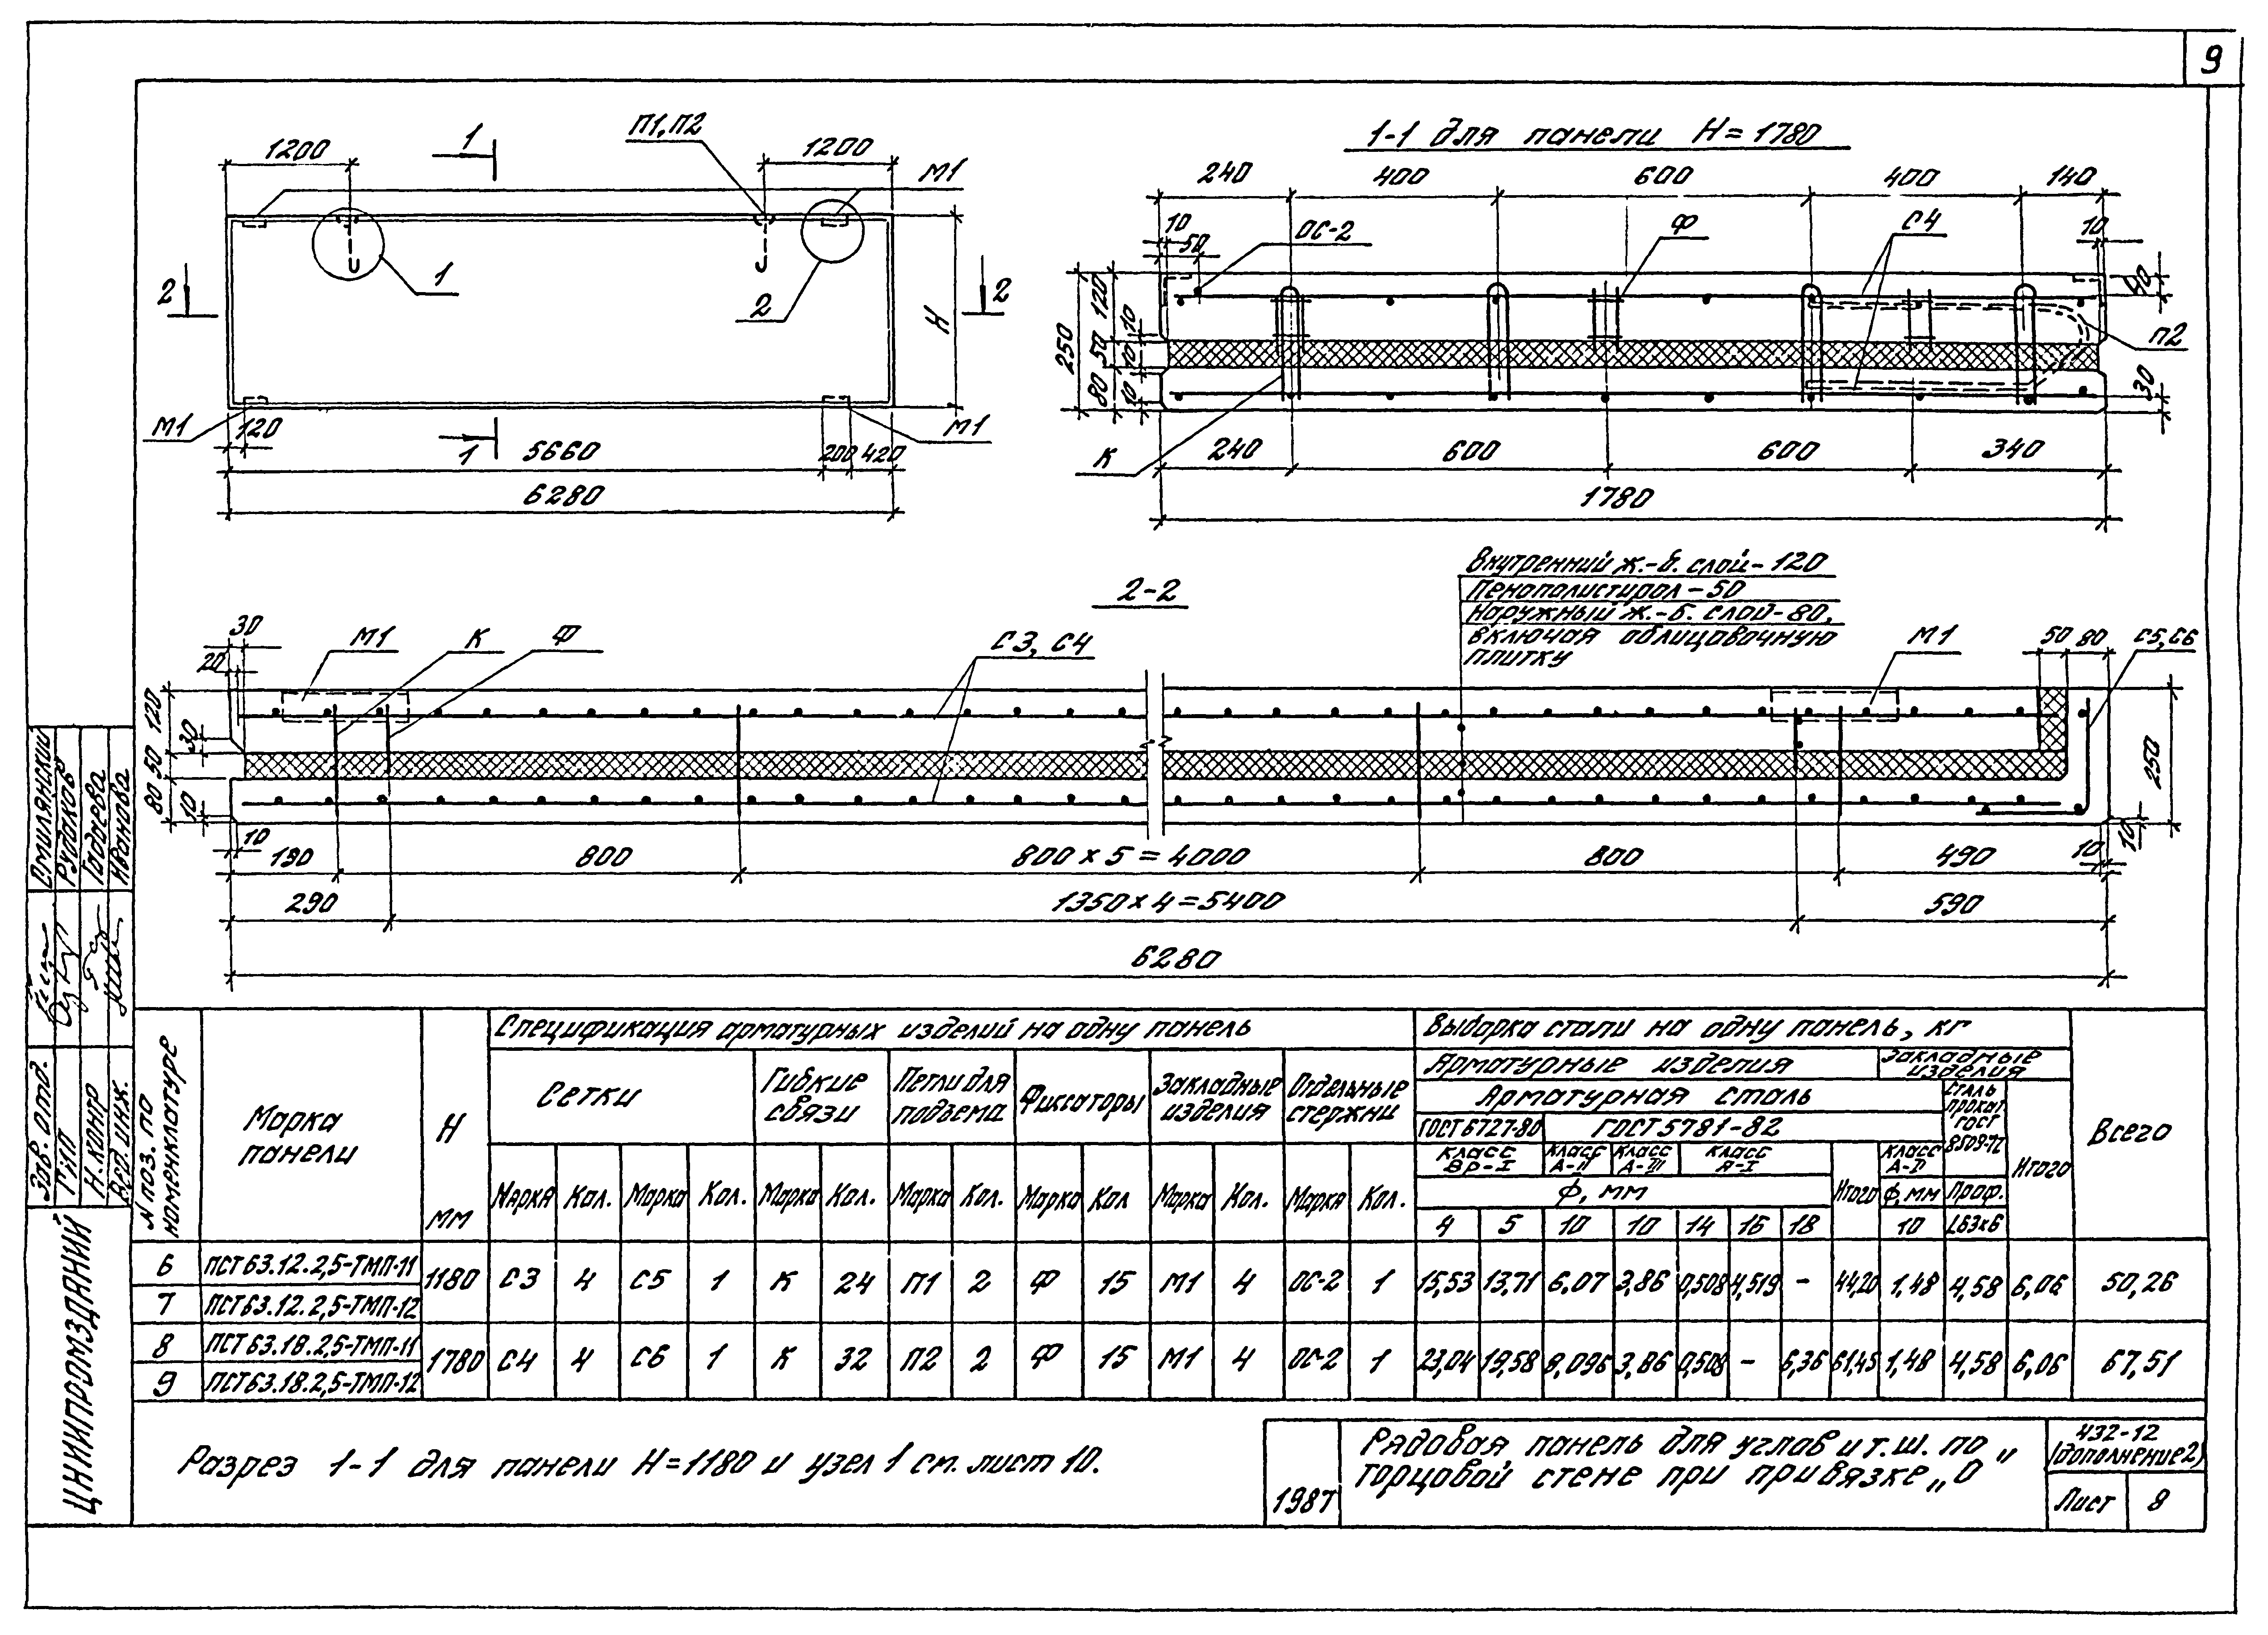 9
1200
1
П1,П2
1200
М1
1
2
2
2
Н
М1
120
1
М1
5660
200
420
6280
1-1 для панели Н=1780
240
400
600
400
140
10
50
ОС-2
Ф
С4
10
250
120
50
80
10
10
10
П2
30
К
240
600
600
340
1780
2-2
Внутренний ж.-б. слой-120
Пенополистирол-50
Наружный ж.-б. слой-80,
включая облицовочную
плитку
30
20
М1
К
Ф
С3, С4
М1
50
80
С5,С6
120
50
80
30
10
10
250
10
10
190
800
800×5=4000
800
490
290
1350×4=5400
590
6280
№ поз. по номенклатуре
Марка панели
Н мм
Спецификация арматурных изделий на одну панель
Выборка стали на одну панель, кг
Всего
Сетки
Гибкие связи
Петли для подъема
Фиксаторы
Закладные изделия
Отдельные стержни
Арматурные изделия
Закладные изделия
Арматурная сталь
Сталь прокат ГОСТ 8509-72
ГОСТ 6727-80
ГОСТ 5781-82
Класс Вр-I
Класс А-II
Класс А-III
Класс А-I
Итого
Класс А-I
Итого
Марка Кол. Марка Кол. Марка Кол. Марка Кол. Марка Кол Марка Кол. Марка Кол.
ф, мм
ф, мм
Проф.
4 5 10 10 14 16 18 10 L63×6
6 ПСТ63.12.2,5-ТМП-11
1180 С3 4 С5 1 К 24 П1 2 Ф 15 М1 4 ОС-2 1 15,53 13,71 6,07 3,86 0,508 4,519 - 44,20 1,48 4,58 6,06 50,26
7 ПСТ63.12.2,5-ТМП-12
8 ПСТ63.18.2,5-ТМП-11
1780 С4 4 С6 1 К 32 П2 2 Ф 15 М1 4 ОС-2 1 23,04 19,58 8,096 3,86 0,508 - 6,36 61,45 1,48 4,58 6,06 67,51
9 ПСТ63.18.2,5-ТМП-12
Разрез 1-1 для панели Н=1180 и узел 1 см. лист 10.
1987
Рядовая панель для углов и т.ш. по
торцовой стене при привязке „0"
432-12
(дополнение2)
Лист
Зав. отд.
Смилянский
ГИП
Рудаков
Н.контр
Гадаева
Вед. инж.
Иванова
ЦНИИПРОМЗДАНИЙ